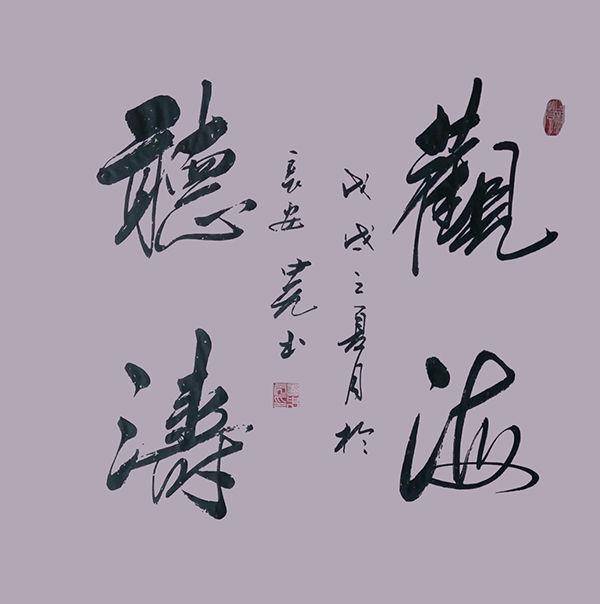 觀海
戊戌之夏月於
長安 堯書
聽濤